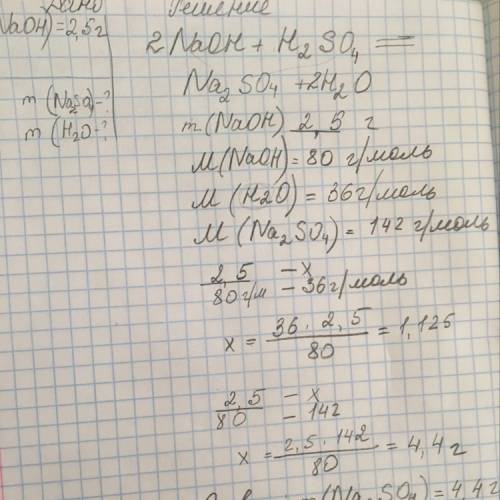 Дано
NaOH) = 2,5 г
m (Na2SO4) - ?
m (H2O - ?
Решение
2NaOH + H2SO4 =
Na2SO4 + 2H2O
m (NaOH) 2,5 г
M (NaOH) = 80 г/моль
M (H2O) = 36 г/моль
M (Na2SO4) = 142 г/моль
2,5 – x
80 г/м – 36 г/моль
x = 36 · 2,5 / 80 = 1,125
2,5 – x
80 – 142
x = 2,5 · 142 / 80 = 4,4 г
m (Na2SO4) = 4,4 г